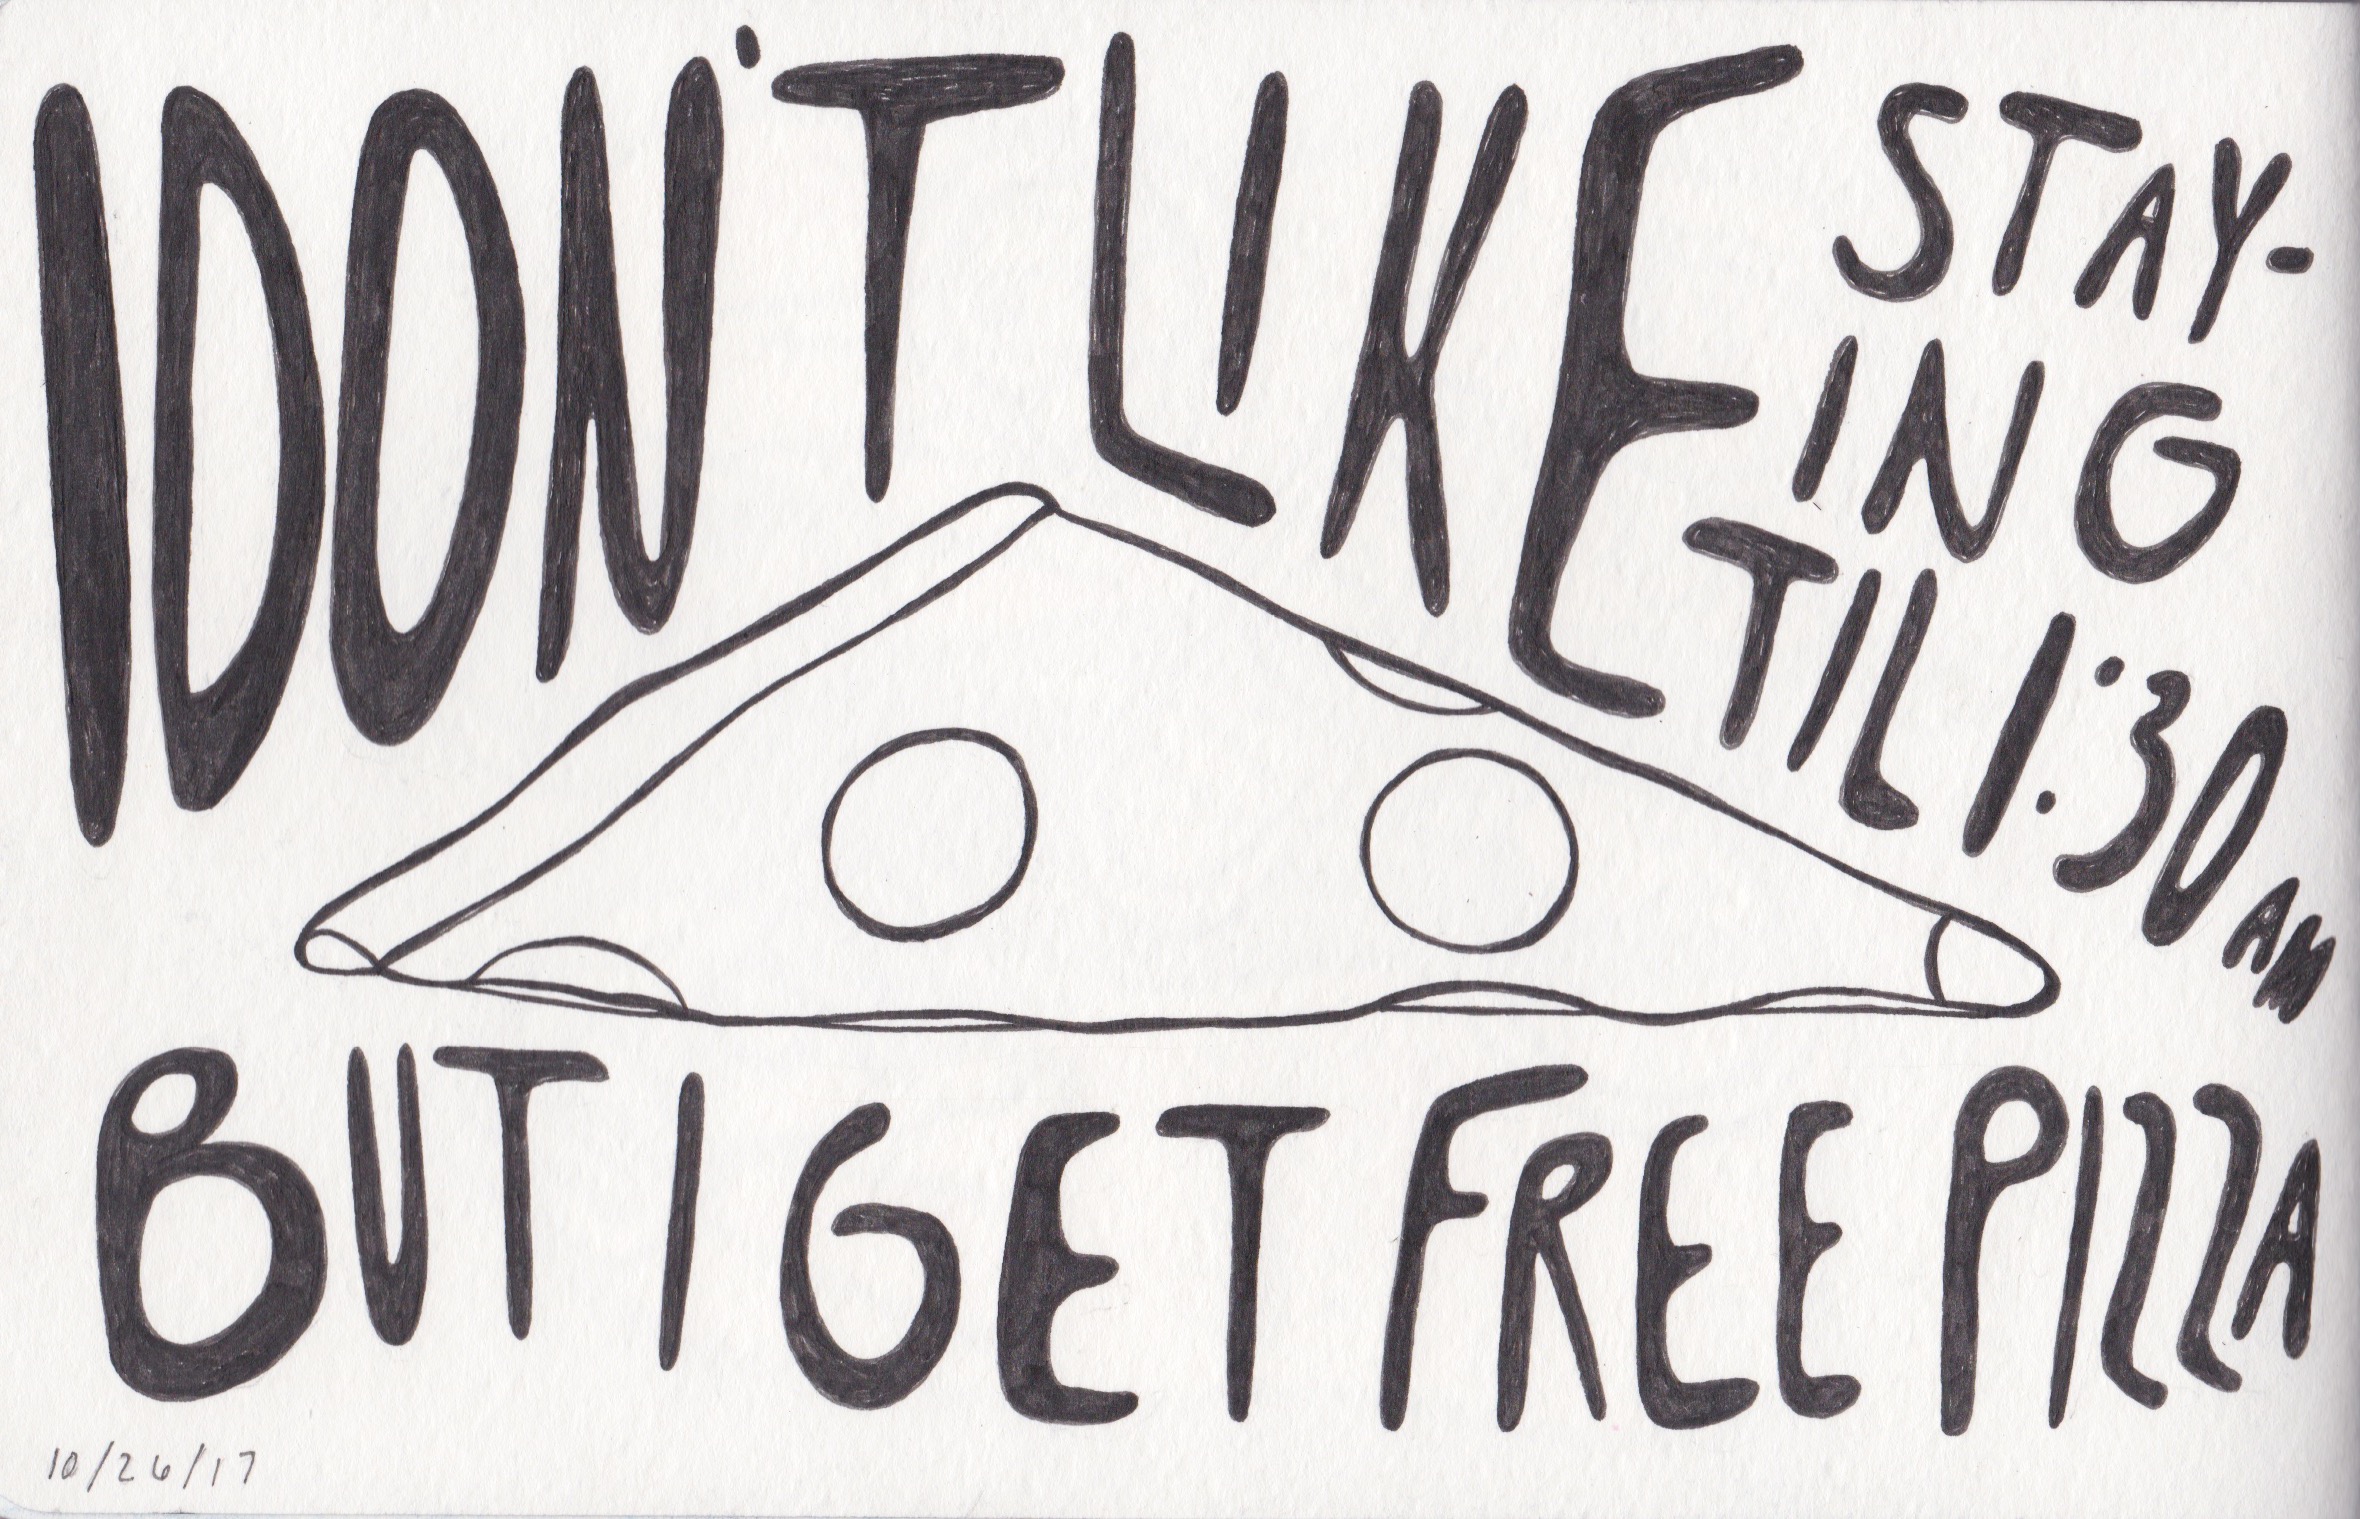 I DON'T LIKE STAY-
ING
TIL 1:30 AM
BUT I GET FREE PIZZA
10/26/17